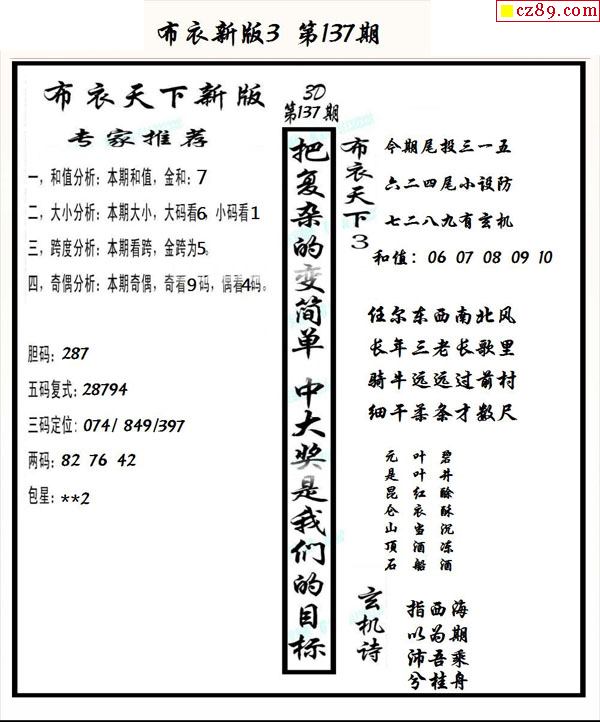 cz89.com
布衣新版3 第137期
布衣天下新版
专家推荐
一，和值分析：本期和值，金和：7
二，大小分析：本期大小，大码看6，小码看1
三，跨度分析：本期看跨，金跨为5。
四，奇偶分析：本期奇偶，奇看9码，偶看4码。
胆码：287
五码复式：28794
三码定位：074/ 849/397
两码：82 76 42
包星：**2
3D
第137期
把复杂的变简单 中大奖是我们的目标
布衣天下3
今期尾投三一五
六二四尾小设防
七二八九有玄机
和值：06 07 08 09 10
任尔东西南北风
长年三老长歌里
骑牛远远过前村
细干柔条才数尺
碧井酴酥沉冻酒
叶叶红衣当酒船
元是昆仑山顶石
玄机诗
指西海
以为期
沛吾乘
兮桂舟